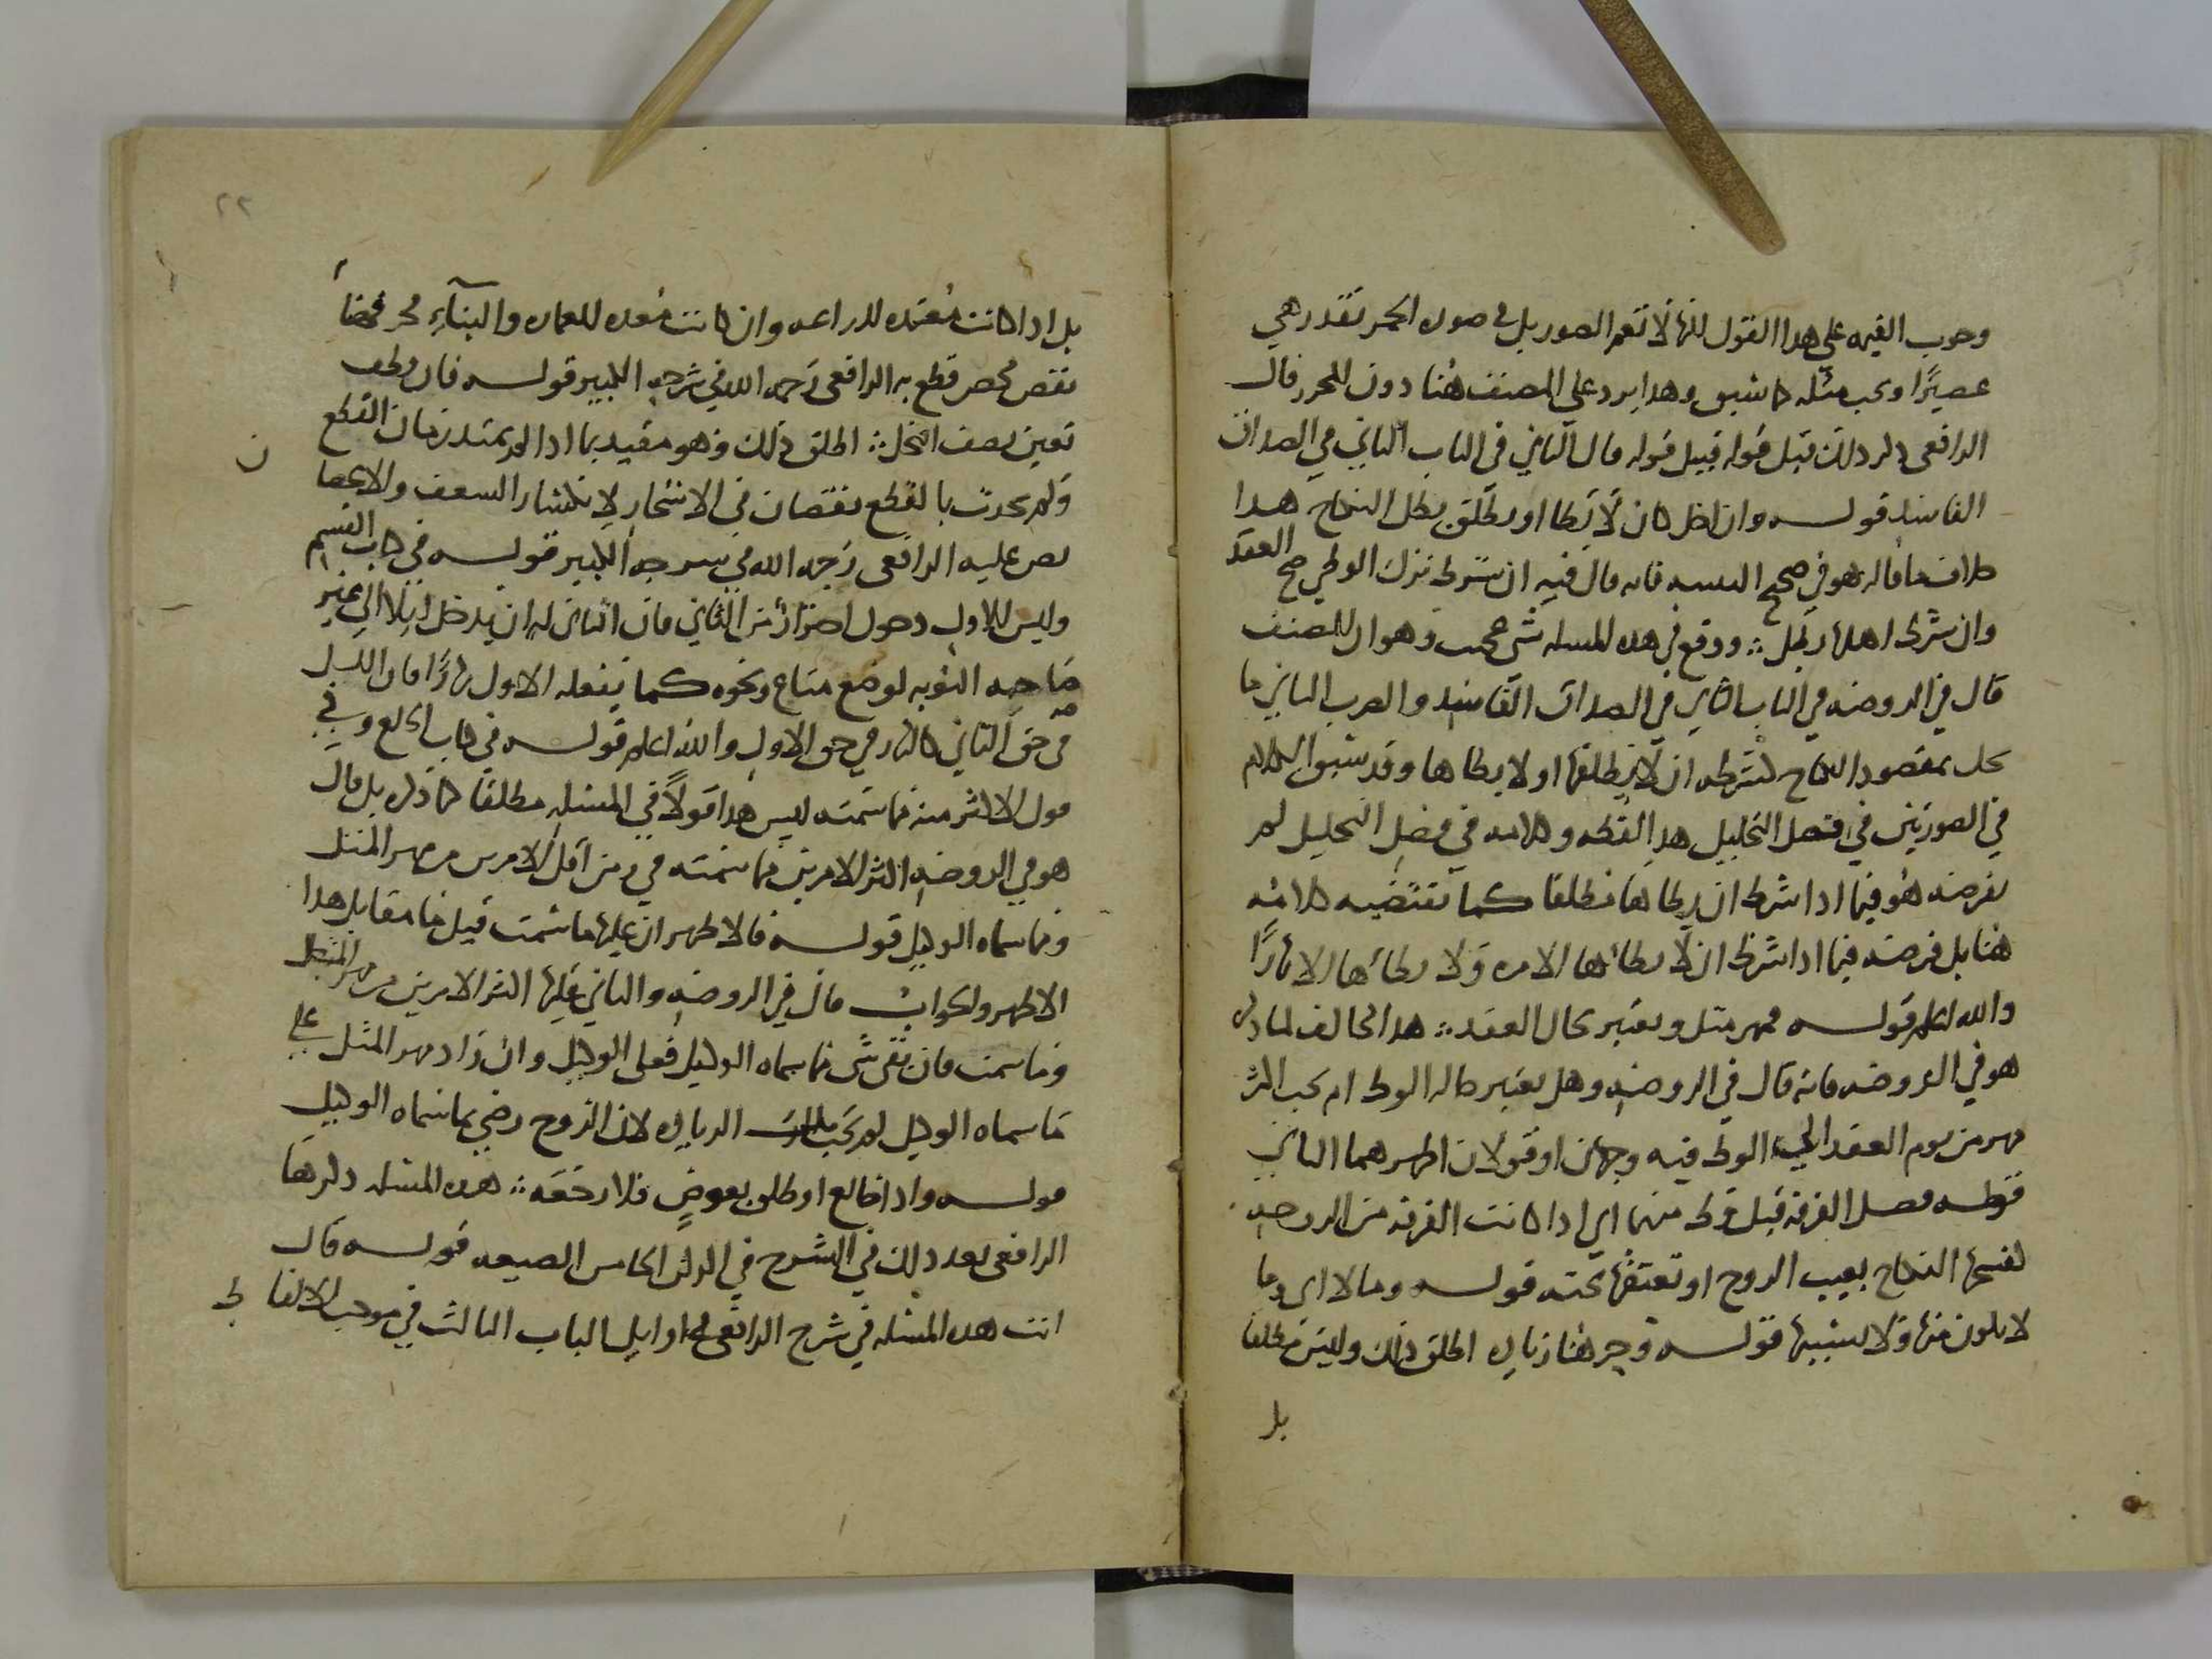 وجوب القيمه على هذا القول لكنها لا تعم الصور بل في صوره الخمر تقدر هي
عصيرًا ويجب مثله كما سبق وهذا يرد على المصنف هنا دون المحرر قال
الرافعى ذكر ذلك قبل قوله قبيل قوله قال الثاني في الباب الثاني في الصداق
الفاسد قولــه وان اخل كان لا يطا او يطلق بطل النكاح هذا
خلاف ما قاله هو في صحيح التنبيه فانه قال فيه ان شرط ترك الوطي صح العقد
وان شرط اهلها بطل ؞ ووقع في هذه المسله شي عجيب وهو ان المصنف
قال في الروضه في الباب الثاني في الصداق الفاسد والضرب الثاني ما
يخل بمقصود النكاح كشرطه ان لا يطلقها او لا يطاها وقد سبق الكلام
في الصورتين في فصل التحليل هذا لفظه وكلامه في فصل التحليل لم
يفرضه هو فيما اذا شرط ان لا يطاها مطلقا كما يقتضيه كلامه
هنا بل فرضه فيما اذا شرط ان لا يطاها الا مره ولا يطاها الا نهارًا
والله اعلم قولــه مهر مثل ويعتبر بحال العقد ؞ هذا مخالف لما ذكره
هو في الروضه فانه قال في الروضه وهل يعتبر حاله الوط ام يجب اكثر
مهر من يوم العقد الي الوط فيه وجهان او قولان اظهرهما الثاني
قولــه فصل الفرقه قبل وط منها اي اذا كانت الفرقه من الزوجه
لفسخها النكاح بعيب الزوج او تعتقها تحته قولــه وما لا اى وما
لا يكون منها ولا بسببها قولــه وجر هنا زياده اطلق ذلك وليس مطلقا
بل
٢٢
بل اذا كانت معتده للزراعه وان كانت معده للعماره والبناء فحرثها
نقص محض قطع به الرافعى رحمه الله في شرحه الكبير قولــه فان وطلع
تعين نصف النخل ؞ اطلق ذلك وهو مقيد بما اذا لم يمتد زمان القطع
ولم يحدث بالقطع نقصان في الاشجار لانكسار السعف والاغصان
نص عليه الرافعى رحمه الله في شرحه الكبير قولــه في كتاب القسم
وليس للاول دخول احترازا من الثاني فان الثاني له ان يدخل ليلا الي غير
صاحبه النوبه لوضع متاع ونحوه كما يفعله الاول نهارًا فان الليل
في حق الثاني كالنهار في حق الاول والله اعلم قولــه في كتاب الخلع وفي
قول الاكثر منه وما سمته ليس هذا قولاً في المسله مطلقا كما ذكره بل قال
هو في الروضه اكثر الامرين مما سمته هي ومن اقل الامرين من مهر المثل
وما سماه الوكيل قولــه فالاظهر ان عليها ما سمت قيل ما مقابل هذا
الاظهر والجواب قال في الروضه والثاني عليها اكثر الامرين من مهر المثل
وما سمت فان بقي شى مما سماه الوكيل فعلى الوكيل وان زاد مهر المثل علي
ما سماه الوكيل لم تجب تلك الزياده لان الزوج رضي بما سماه الوكيل
قولــه واذا خالع او طلق بعوض فلا رجعه ؞ هذه المسله ذكرها
الرافعى بعد ذلك في الشرح في الركن الخامس الصيغه قولــه قال
انت هذه المسله في شرح الرافعى في اوايل الباب الثالث في موجب الالفاظ